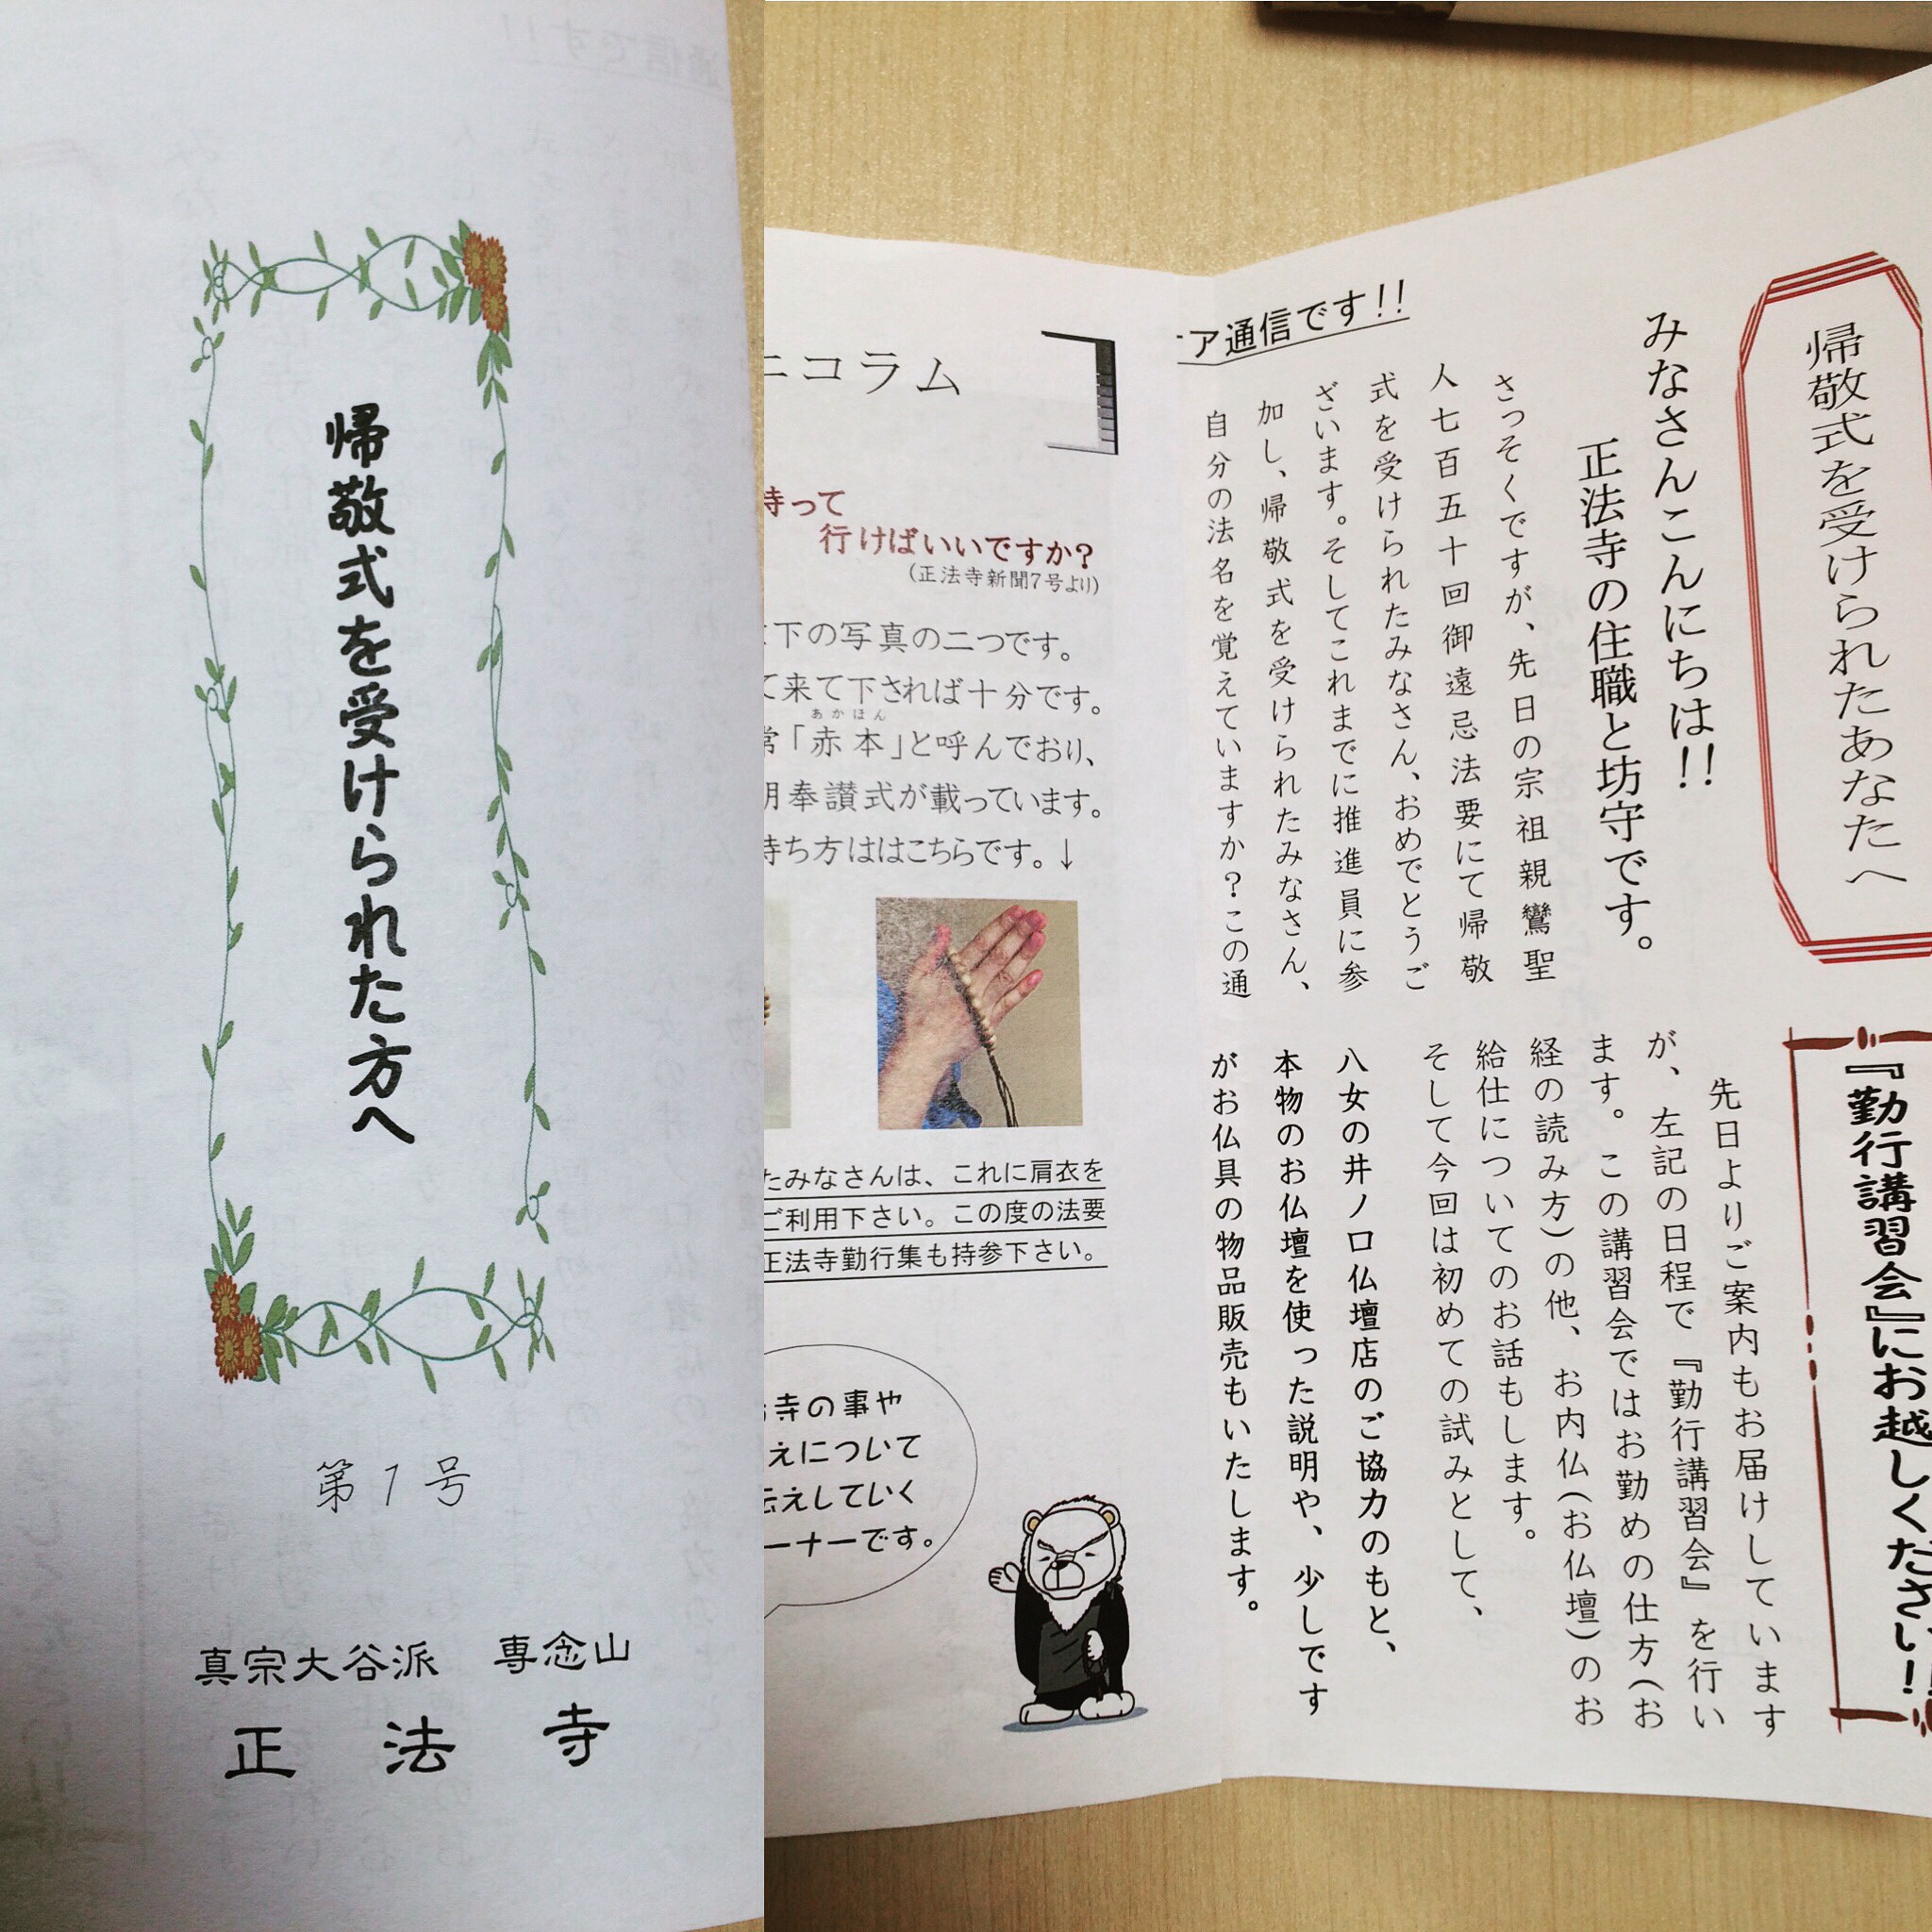 帰敬式を受けられた方へ
第1号
真宗大谷派 専念山
正法寺
帰敬式を受けられたあなたへ
みなさんこんにちは!!
正法寺の住職と坊守です。
さっそくですが、先日の宗祖親鸞聖
人七百五十回御遠忌法要にて帰敬
式を受けられたみなさん、おめでとうご
ざいます。そしてこれまでに推進員に参
加し、帰敬式を受けられたみなさん、
自分の法名を覚えていますか?この通
『勤行講習会』にお越しください!!
先日よりご案内もお届けしています
が、左記の日程で『勤行講習会』を行い
ます。この講習会ではお勤めの仕方(お
経の読み方)の他、お内仏(お仏壇)のお
給仕についてのお話もします。
そして今回は初めての試みとして、
八女の井ノ口仏壇店のご協力のもと、
本物のお仏壇を使った説明や、少しです
がお仏具の物品販売もいたします。
ア通信です!!
ニコラム
持って
行けばいいですか?
(正法寺新聞7号より)
下の写真の二つです。
て来て下されば十分です。
常「赤本」と呼んでおり、
あかほん
明奉讃式が載っています。
持ち方ははこちらです。↓
たみなさんは、これに肩衣を
ご利用下さい。この度の法要
正法寺勤行集も持参下さい。
お寺の事や
えについて
伝えしていく
ーナーです。